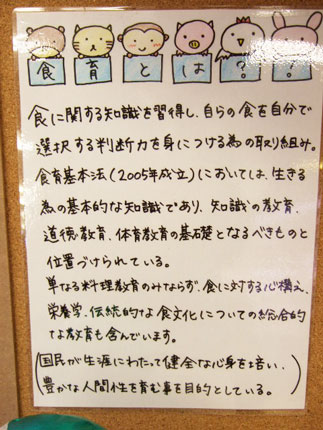 食育とは？！
食に関する知識を習得し、自らの食を自分で
選択する判断力を身につける為の取り組み。
食育基本法（2005年成立）においては、生きる
為の基本的な知識であり、知識の教育、
道徳教育、体育教育の基礎となるべきものと
位置づけられている。
単なる料理教育のみならず、食に対する心構え、
栄養学、伝統的な食文化についての総合的
な教育も含んでいます。
（国民が生涯にわたって健全な心身を培い、
豊かな人間性を育む事を目的としている。）